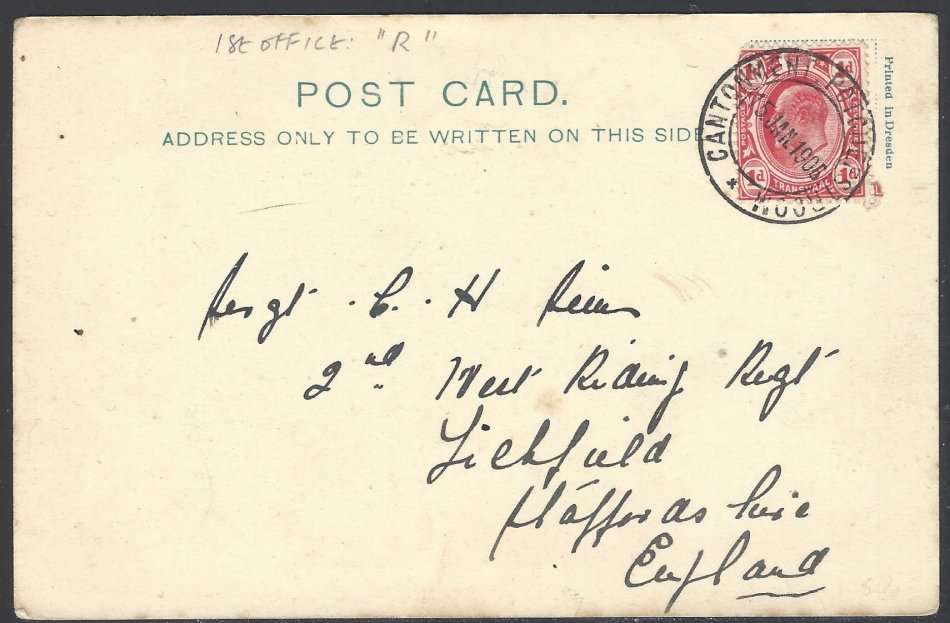 1st OFFICE: "R"
POST CARD.
ADDRESS ONLY TO BE WRITTEN ON THIS SIDE
Printed in Dresden
CANTONMENT
JAN 1908
1d 1d
TRANSVAAL
Sergt. C. H
2nd West Riding Regt
Lichfield
Staffordshire
England